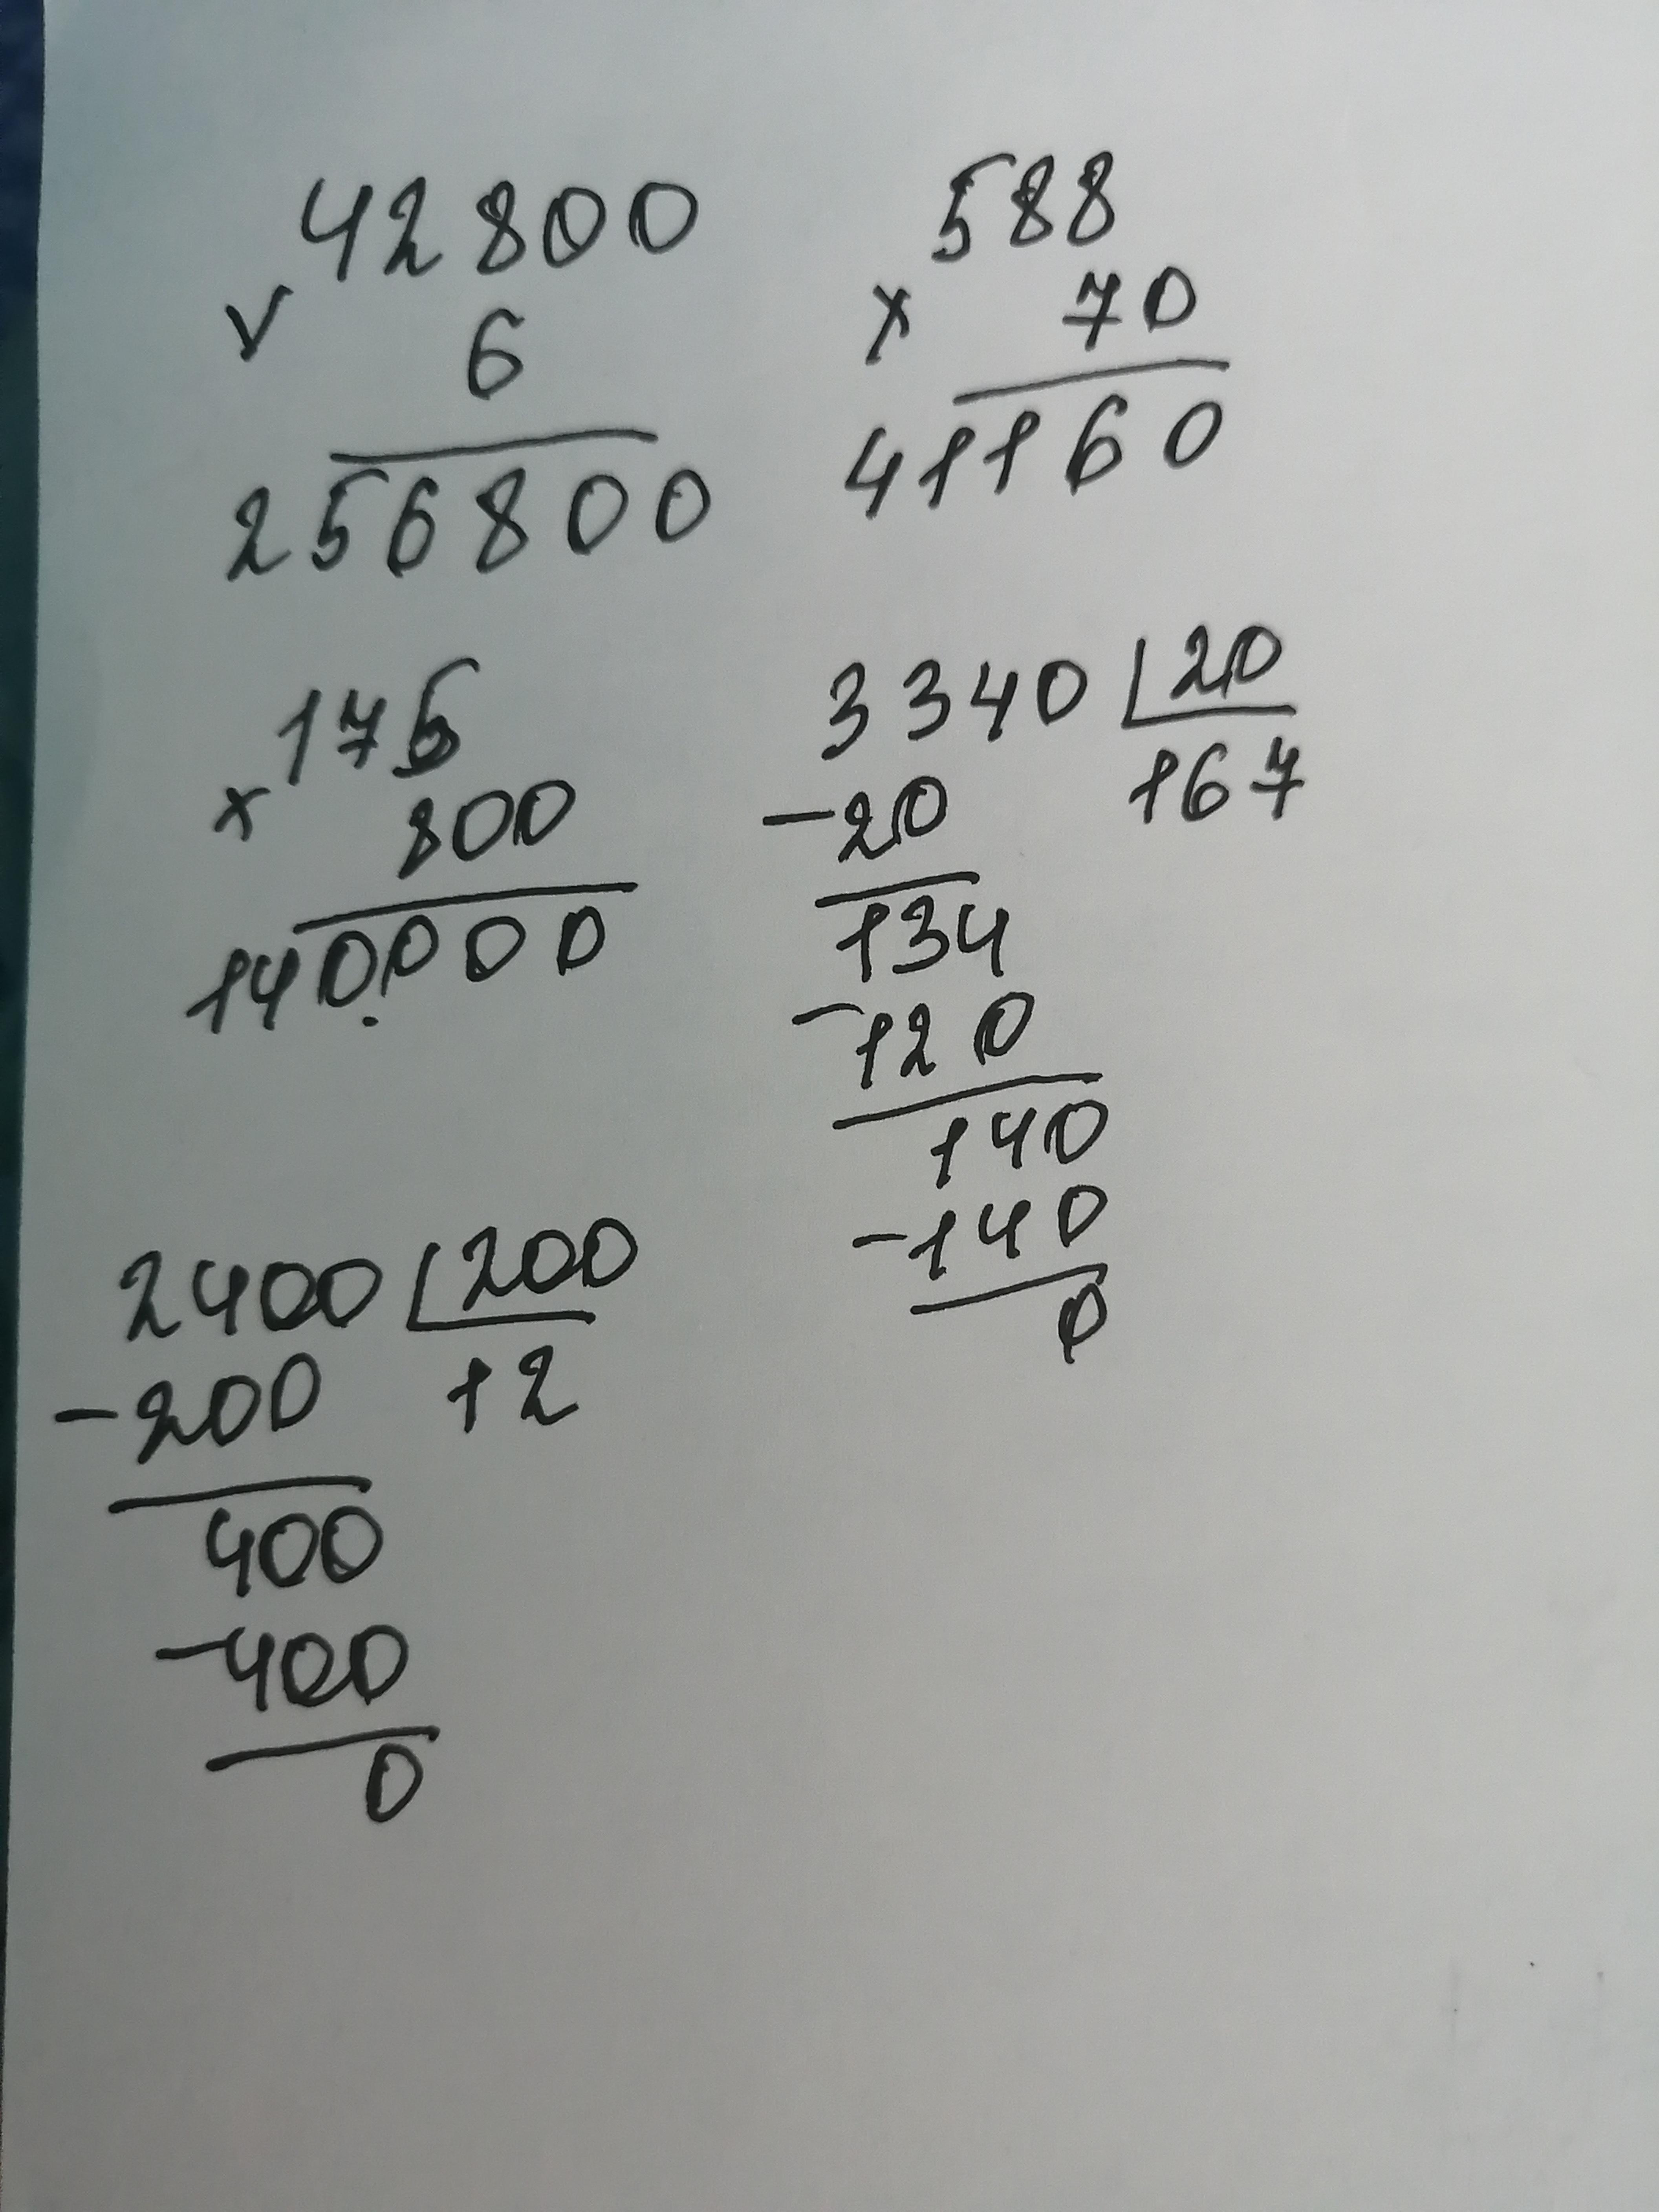 42800
× 6
256800
588
× 70
41160
175
× 800
140000
3340 | 20
167
-20
134
-120
140
-140
0
2400 | 200
-200 12
400
-400
0